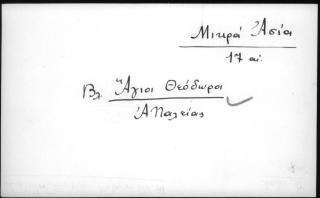 Μικρά Ἀσία
17 αἰ.
Βλ. Ἅγιοι Θεόδωροι
Ἀπαλείας